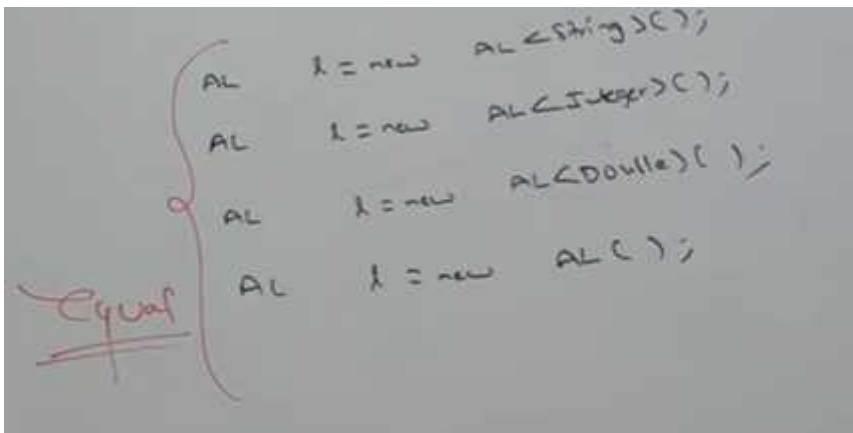 AL l = new AL<String>();
AL l = new AL<Integer>();
AL l = new AL<Double>();
AL l = new AL();
Equal